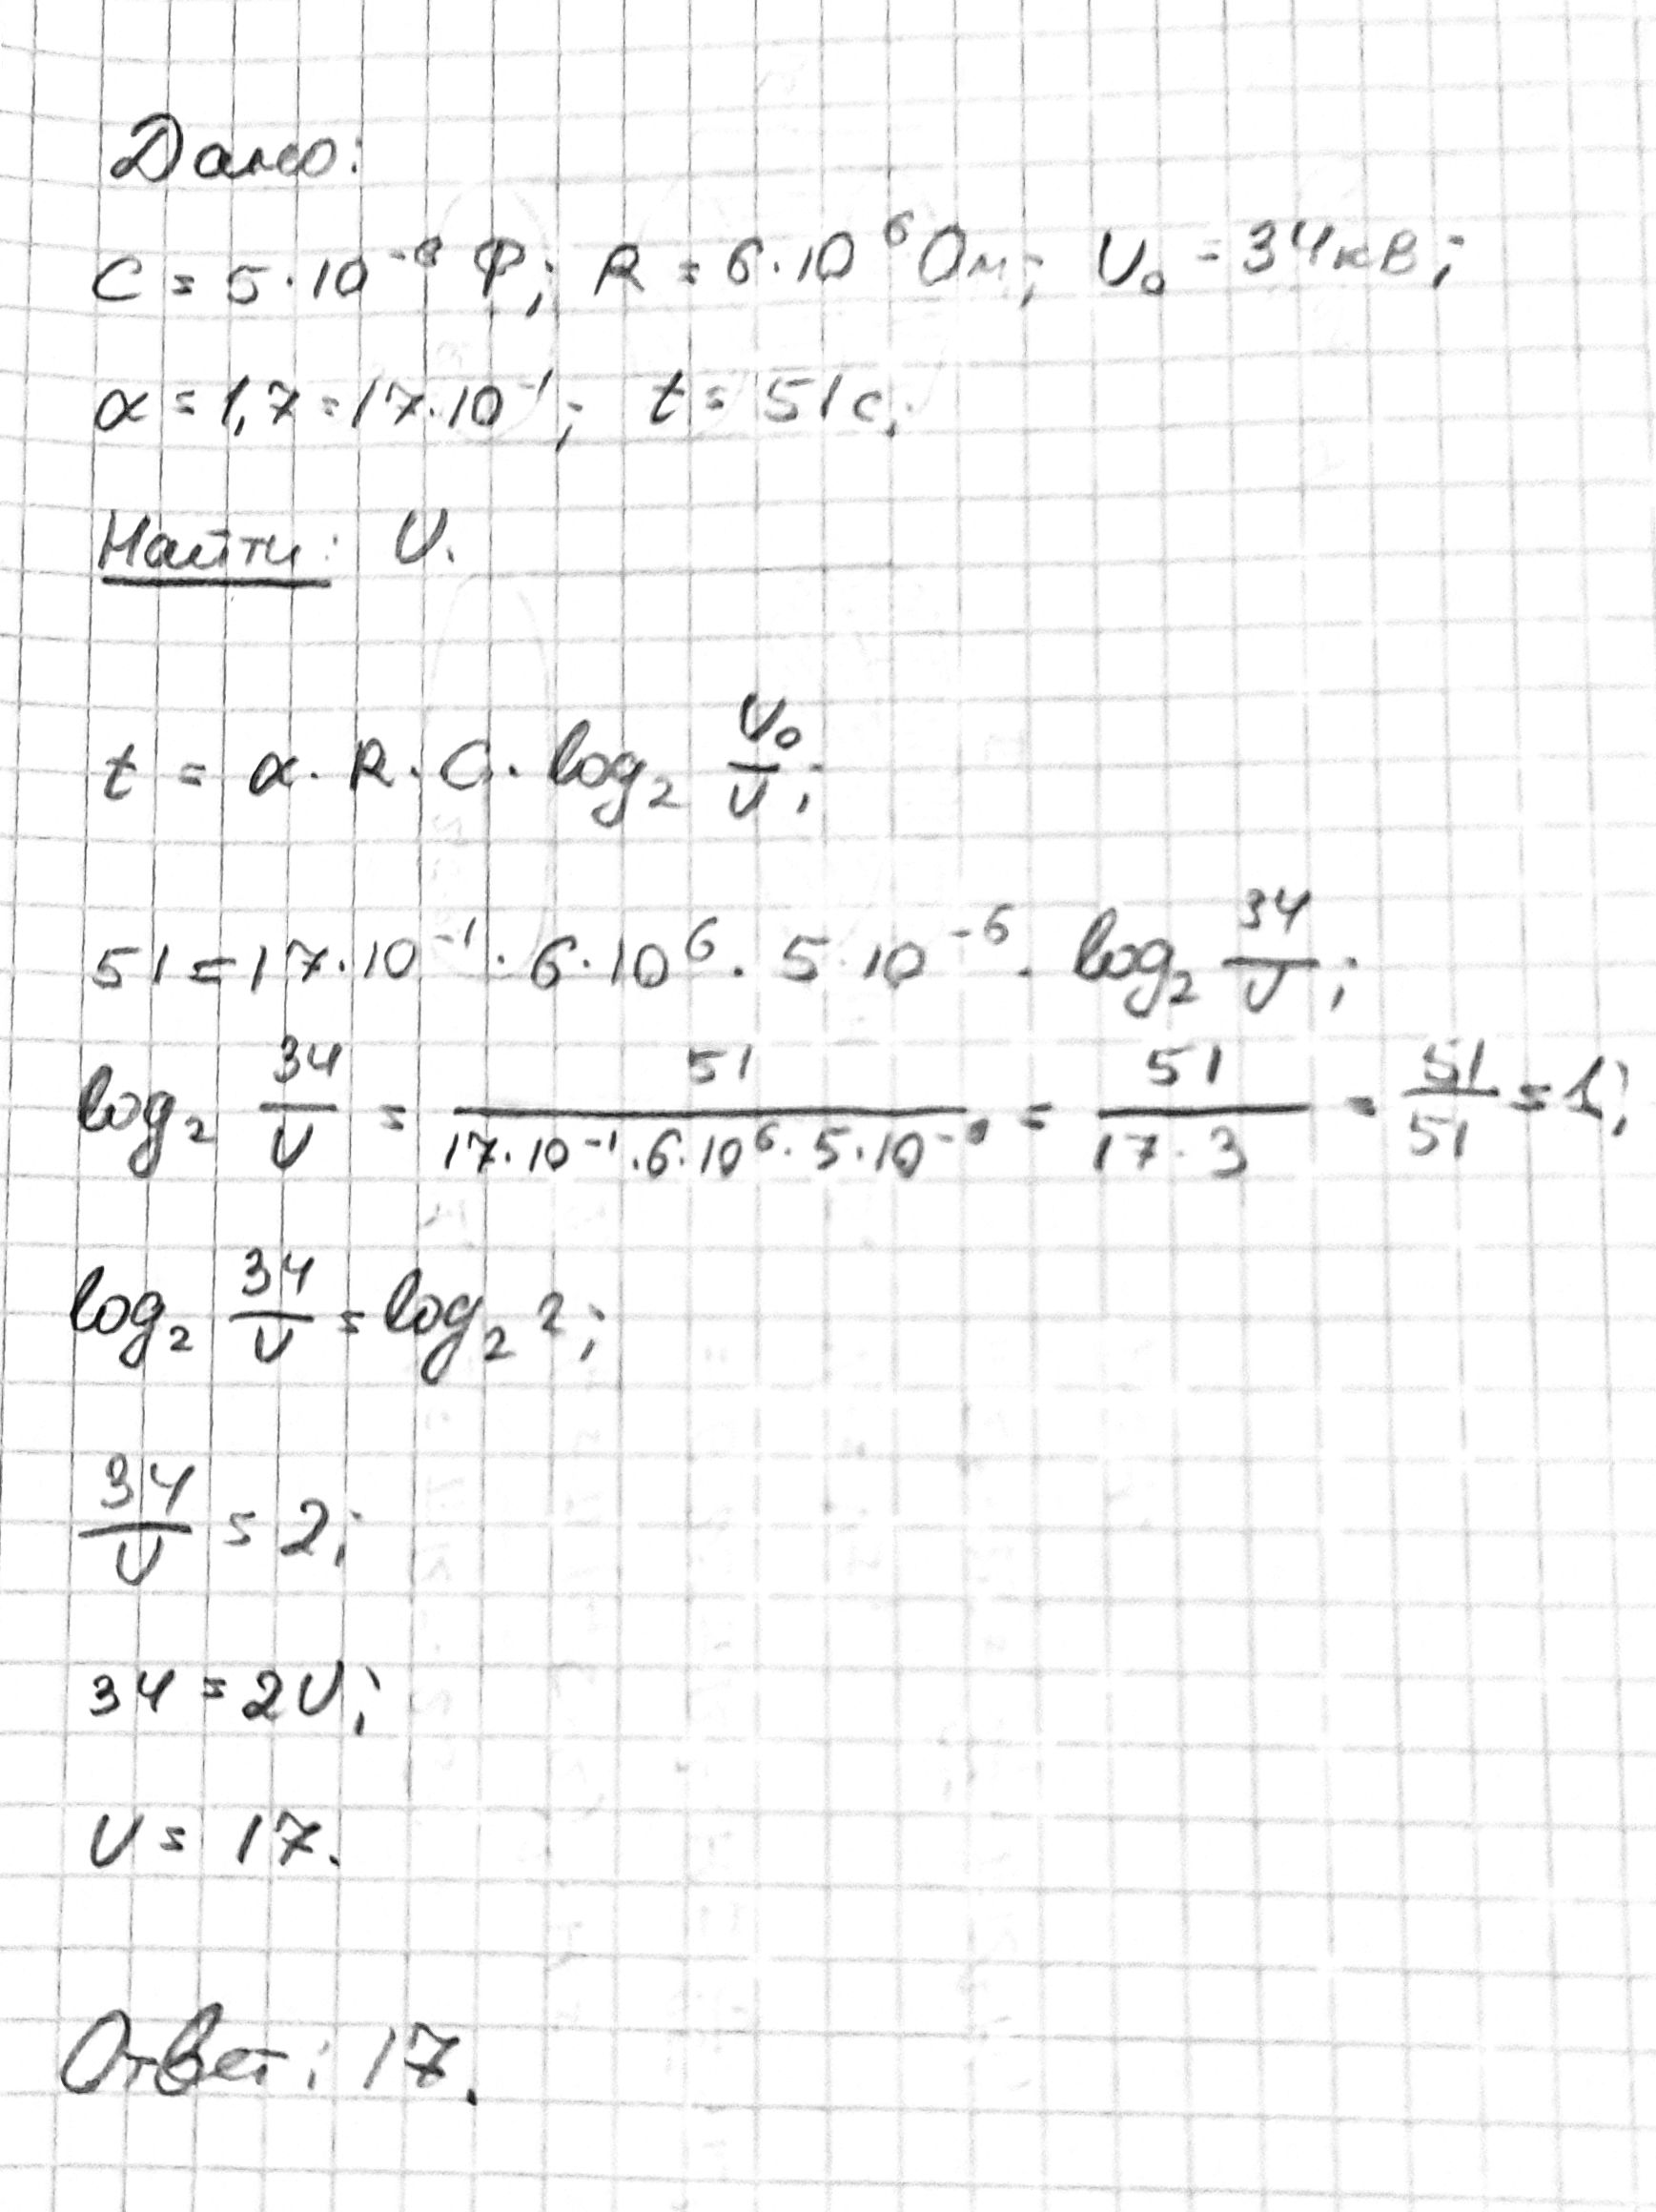 Дано:
C = 5·10⁻⁶ Ф; R = 6·10⁶ Ом; U₀ = 34кВ;
α = 1,7 = 17·10⁻¹; t = 51с;
Найти: U.
t = α·R·C·log₂ U₀/U;
51 = 17·10⁻¹·6·10⁶·5·10⁻⁶·log₂ 34/U;
log₂ 34/U = 51/(17·10⁻¹·6·10⁶·5·10⁻⁶) = 51/(17·3) = 51/51 = 1;
log₂ 34/U = log₂ 2;
34/U = 2;
34 = 2U;
U = 17.
Ответ: 17.